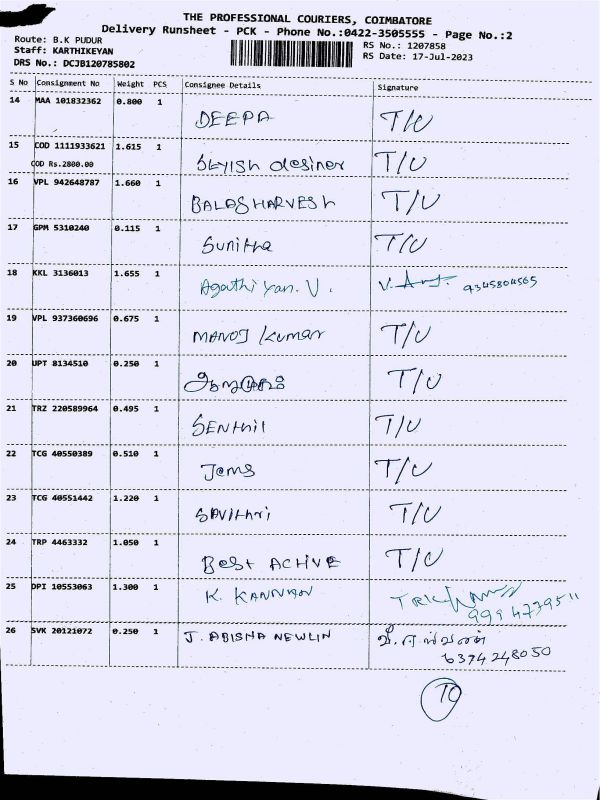 THE PROFESSIONAL COURIERS, COIMBATORE
Delivery Runsheet - PCK - Phone No.:0422-3505555 - Page No.:2
Route: B.K PUDUR
RS No.: 1207858
Staff: KARTHIKEYAN
RS Date: 17-Jul-2023
DRS No.: DCJB120785802
S No Consignment No Weight PCS Consignee Details Signature
14 MAA 101832362 0.800 1 DEEPA T/U
15 COD 1111933621 1.615 1 Slyish desiner T/U
COD Rs.2800.00
16 VPL 942648787 1.660 1 BALAGHARVESH T/U
17 GPM 5310240 0.115 1 Sunitha T/U
18 KKL 3136013 1.655 1 Agathiyan. V. 9345804565
19 VPL 937360696 0.675 1 MANOJ kumar T/U
20 UPT 8134510 0.250 1 T/U
21 TRZ 220589964 0.495 1 SENthil T/U
22 TCG 40550389 0.510 1 Jems T/U
23 TCG 40551442 1.220 1 SAVithri T/U
24 TRP 4463332 1.050 1 BeSt ACTIVE T/U
25 DPI 10553063 1.300 1 K. KANNAN
26 SVK 20121072 0.250 1 J. ABISHA NEWLIN
6374248050
TO